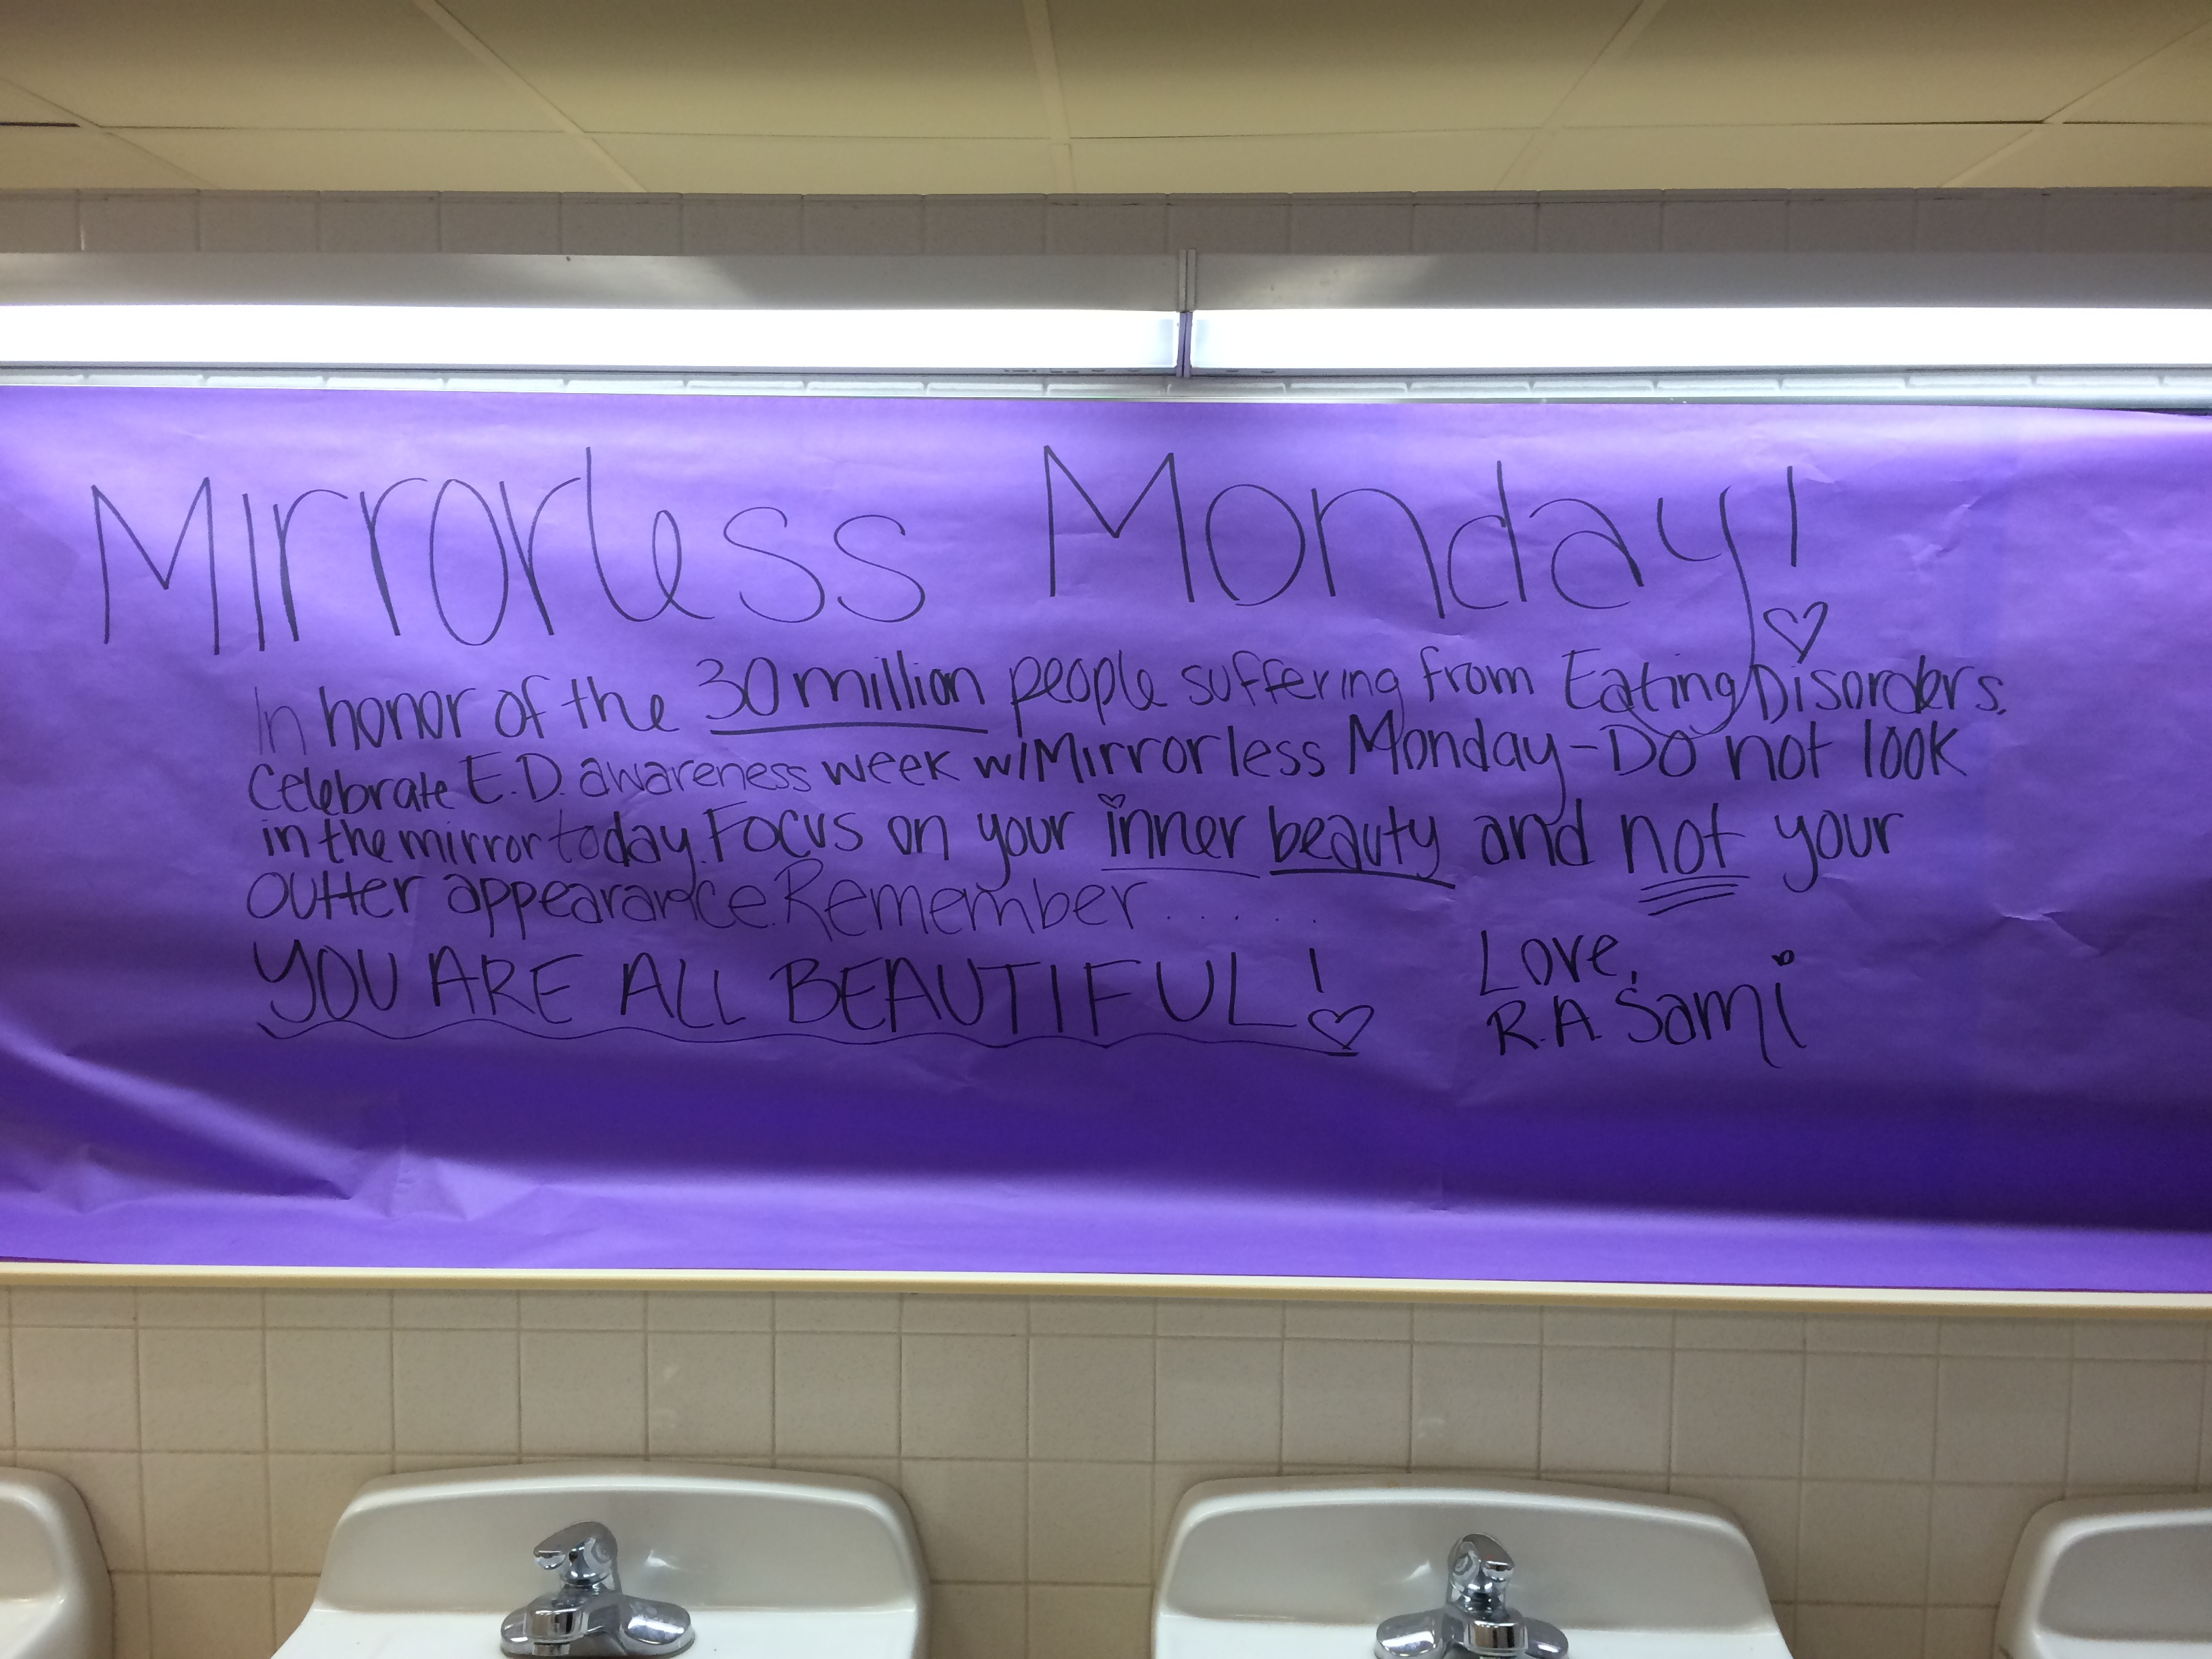 Mirrorless Monday!
In honor of the 30 million people suffering from Eating Disorders.
Celebrate E.D. awareness week w/Mirrorless Monday-Do not look
in the mirror today. Focus on your inner beauty and not your
outter appearance. Remember......
YOU ARE ALL BEAUTIFUL!
Love,
R.A. Sami